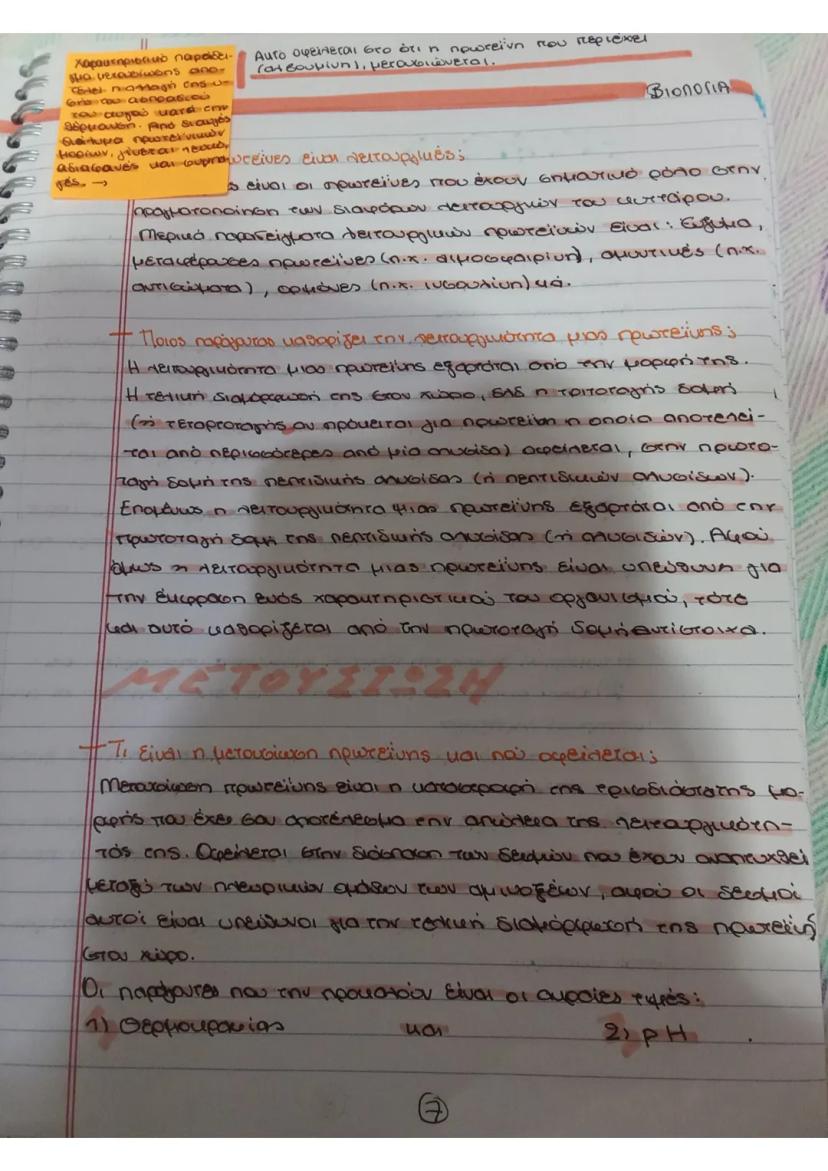 Χαρακτηριστικό παράδει-
γμα μετουσίωσης απο-
τελεί η αλλαγή της υ-
φής του ασπραδιού
του αυγού κατά την
θέρμανση. Από διαυγές
διάλυμα πρωτεϊνικών
μορίων, γίνεται λευκό,
αδιαφανές και συμπα-
γές. →
Αυτό οφείλεται στο ότι η πρωτεΐνη που περιέχει
(αλβουμίνη), μετουσιώνεται.
ΒΙΟΛΟΓΙΑ
πρωτεΐνες είναι λειτουργικές;
ς είναι οι πρωτεΐνες που έχουν σημαντικό ρόλο στην
πραγματοποίηση των διαφόρων λειτουργιών του κυττάρου.
Μερικά παραδείγματα λειτουργικών πρωτεϊνών είναι: Ένζυμα,
μεταφέρουσες πρωτεΐνες (π.χ. αιμοσφαιρίνη), αμυντικές (π.χ.
αντισώματα), ορμόνες (π.χ. ινσουλίνη) κά.
+ Ποιος παράγοντας καθορίζει την λειτουργικότητα μιας πρωτεΐνης;
Η λειτουργικότητα μιας πρωτεΐνης εξαρτάται από την μορφή της.
Η τελική διαμόρφωσή της στον χώρο, δλδ η τριτοταγής δομή
(ή τεταρτοταγής αν πρόκειται για πρωτεΐνη η οποία αποτελεί-
ται από περισσότερες από μία αλυσίδα) οφείλεται, στην πρωτο-
ταγή δομή της πεπτιδικής αλυσίδας (ή πεπτιδικών αλυσίδων).
Επομένως η λειτουργικότητα μιας πρωτεΐνης εξαρτάται από την
πρωτοταγή δομή της πεπτιδικής αλυσίδας (ή αλυσιδών). Αφού
όμως η λειτουργικότητα μιας πρωτεΐνης είναι υπεύθυνη για
την έκφραση ενός χαρακτηριστικού του οργανισμού, τότε
και αυτό καθορίζεται από την πρωτοταγή δομή αντίστοιχα.
ΜΕΤΟΥΣΙΩΣΗ
+ Τι είναι η μετουσίωση πρωτεΐνης και πού οφείλεται;
Μετουσίωση πρωτεΐνης είναι η καταστροφή της τρισδιάστατης μο-
ρφής που έχει σαν αποτέλεσμα την απώλεια της λειτουργικότη-
τάς της. Οφείλεται στην διάσπαση των δεσμών που έχουν αναπτυχθεί
μεταξύ των πλευρικών ομάδων των αμινοξέων, αφού οι δεσμοί
αυτοί είναι υπεύθυνοι για την τελική διαμόρφωσή της πρωτεΐνης
στον χώρο.
Οι παράγοντες που την προκαλούν είναι οι ακραίες τιμές:
1) Θερμοκρασίας και 2) pH .
7